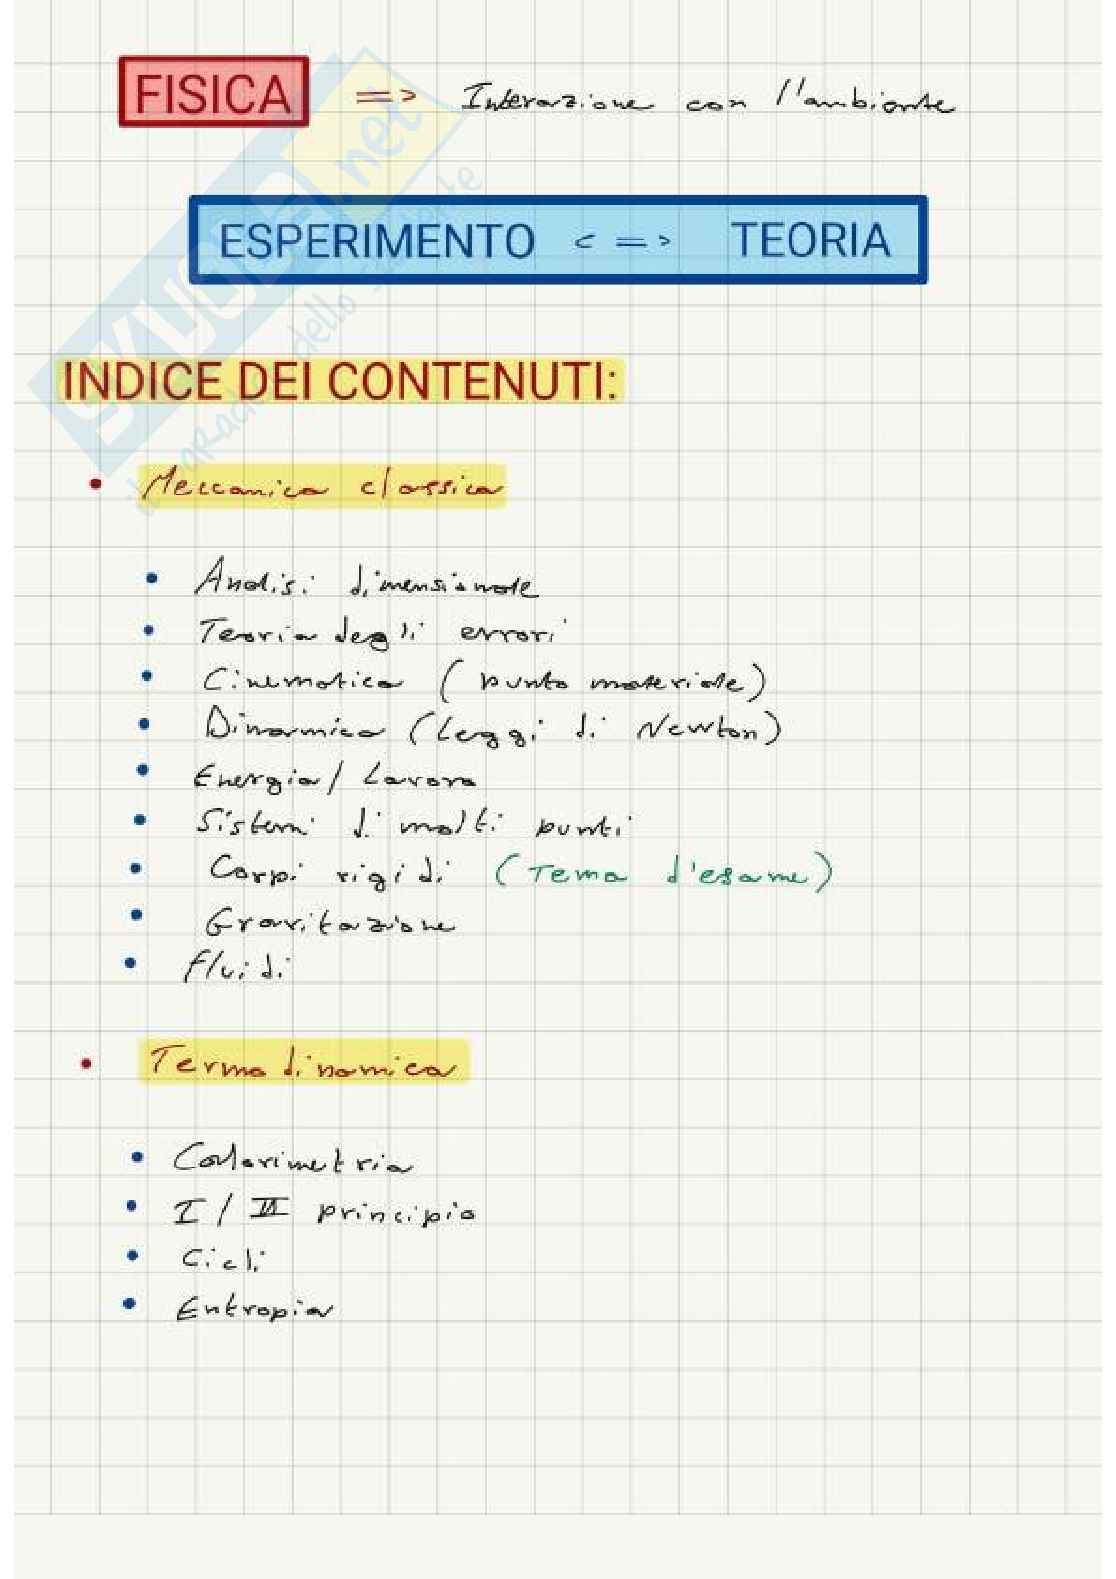 FISICA => Interazione con l'ambiente
ESPERIMENTO <=> TEORIA
INDICE DEI CONTENUTI:
• Meccanica classica
• Analisi dimensionale
• Teoria degli errori
• Cinematica (punto materiale)
• Dinamica (Leggi di Newton)
• Energia/Lavoro
• Sistemi di molti punti
• Corpi rigidi (Tema d'esame)
• Gravitazione
• Fluidi
• Termodinamica
• Calorimetria
• I/II principio
• Cicli
• Entropia
SKUOLA.net
il paradiso dello studente